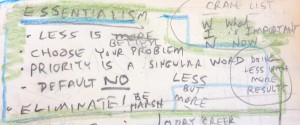 ESSENTIALISM
CRANE LIST
W What
I is IMPORTANT
N NOW
• LESS IS MORE
BELIEM
• CHOOSE YOUR PROBLEM
PRIORITY IS A SINGULAR WORD
• DEFAULT NO
LESS
BUT
MORE
DOING
LESS
MORE
RESULTS
• ELIMINATE! BE
HARSH
CREEK